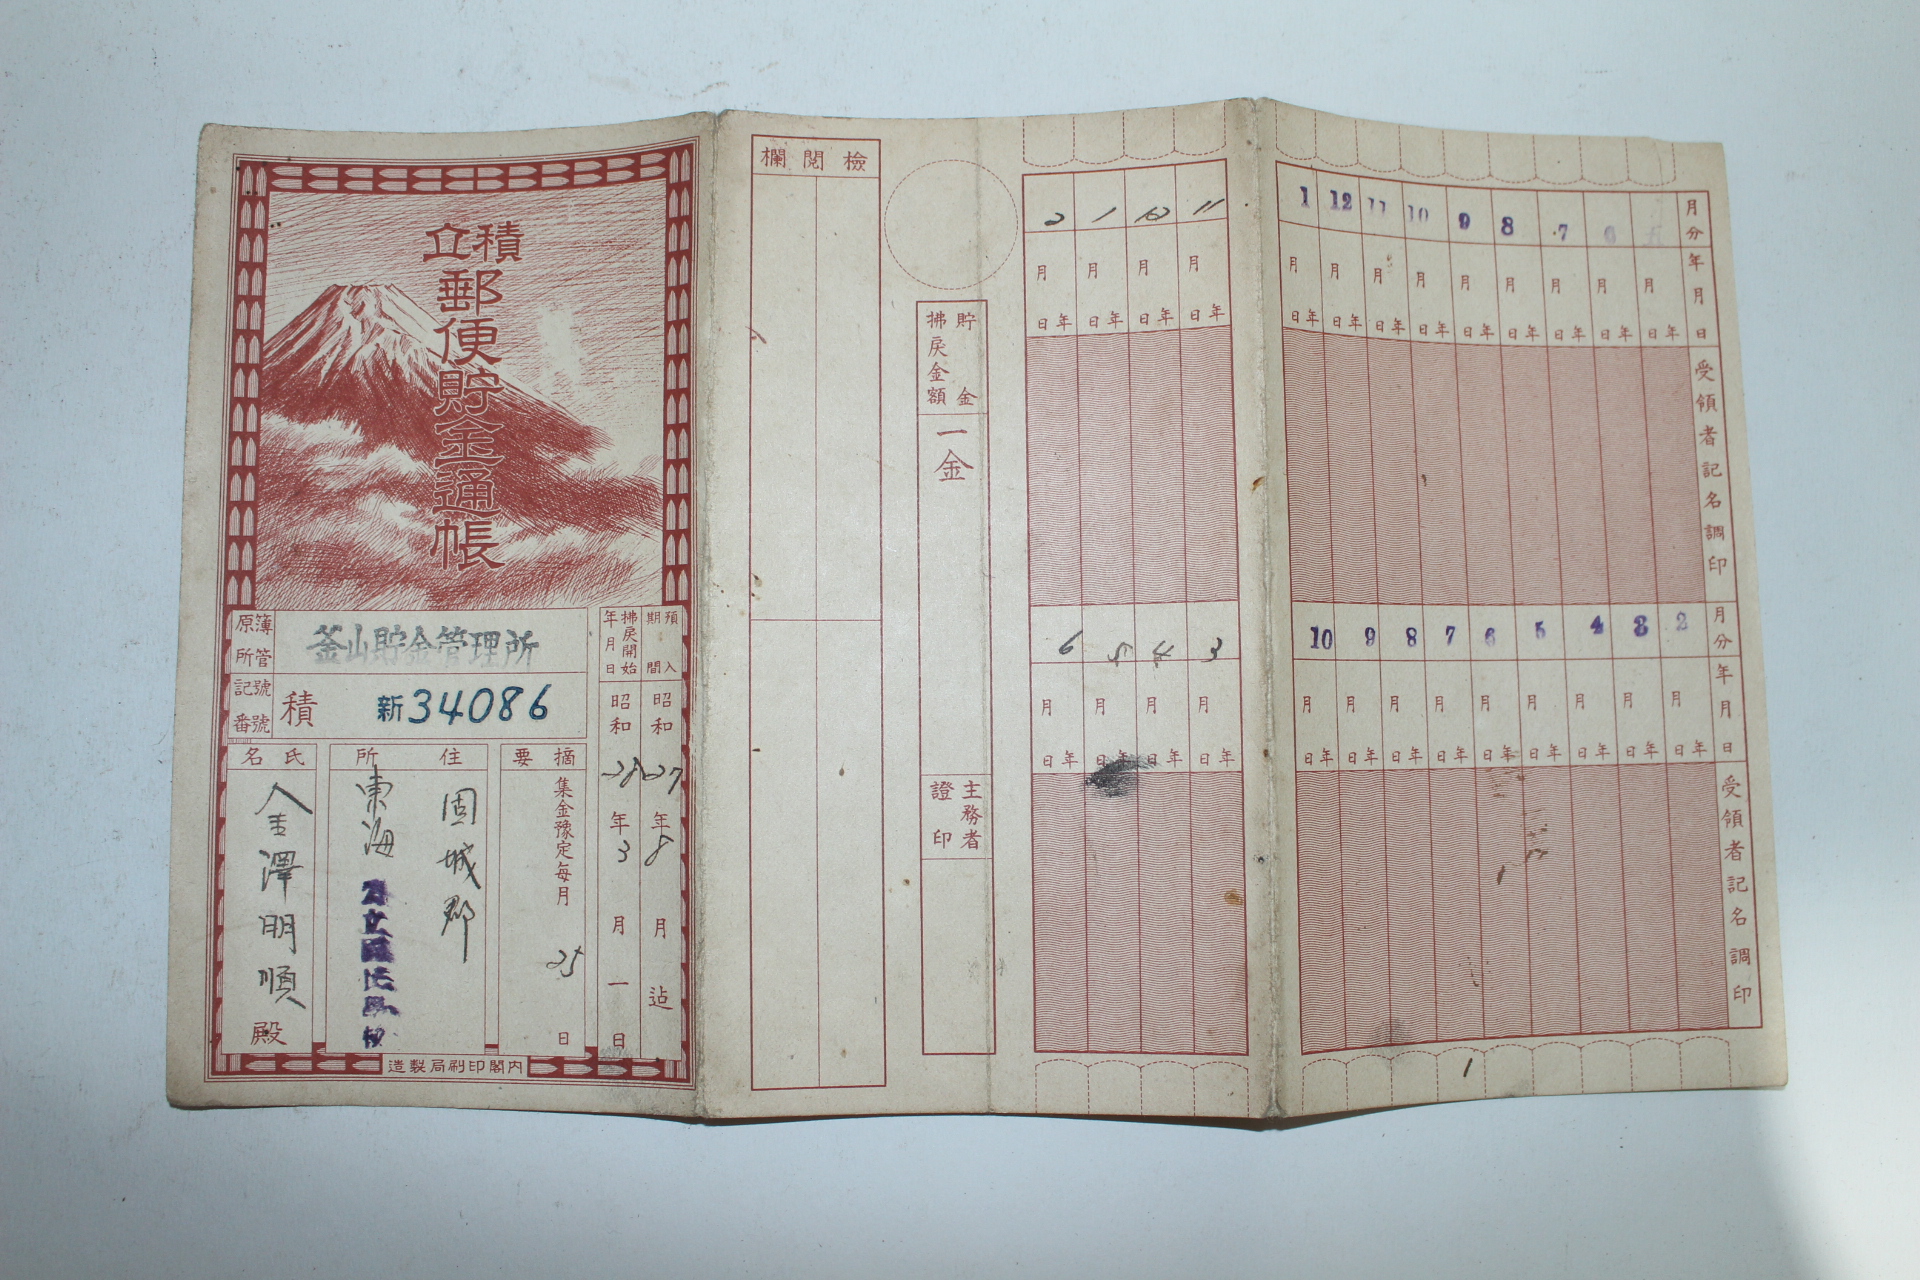 積立
郵便貯金通帳
原簿所管
釜山貯金管理所
記號番號
積 新34086
預入期間
昭和27年8月迠
拂戾開始年月日
昭和28年3月一日
摘要
集金豫定每月25日
住所
固城郡
東海
氏名
金澤明順殿
內閣印刷局製造
檢閱欄
貯金拂戾金額
一金
主務者證印
11 12 1 2
月 月 月 月
年日 年日 年日 年日
3 4 5 6
月 月 月 月
年日 年日 年日 年日
月分
6 7 8 9 10 11 12 1
年月日
月 月 月 月 月 月 月 月 月
年日 年日 年日 年日 年日 年日 年日 年日 年日
受領者記名調印
月分
2 3 4 5 6 7 8 9 10
年月日
月 月 月 月 月 月 月 月 月
年日 年日 年日 年日 年日 年日 年日 年日 年日
受領者記名調印
1